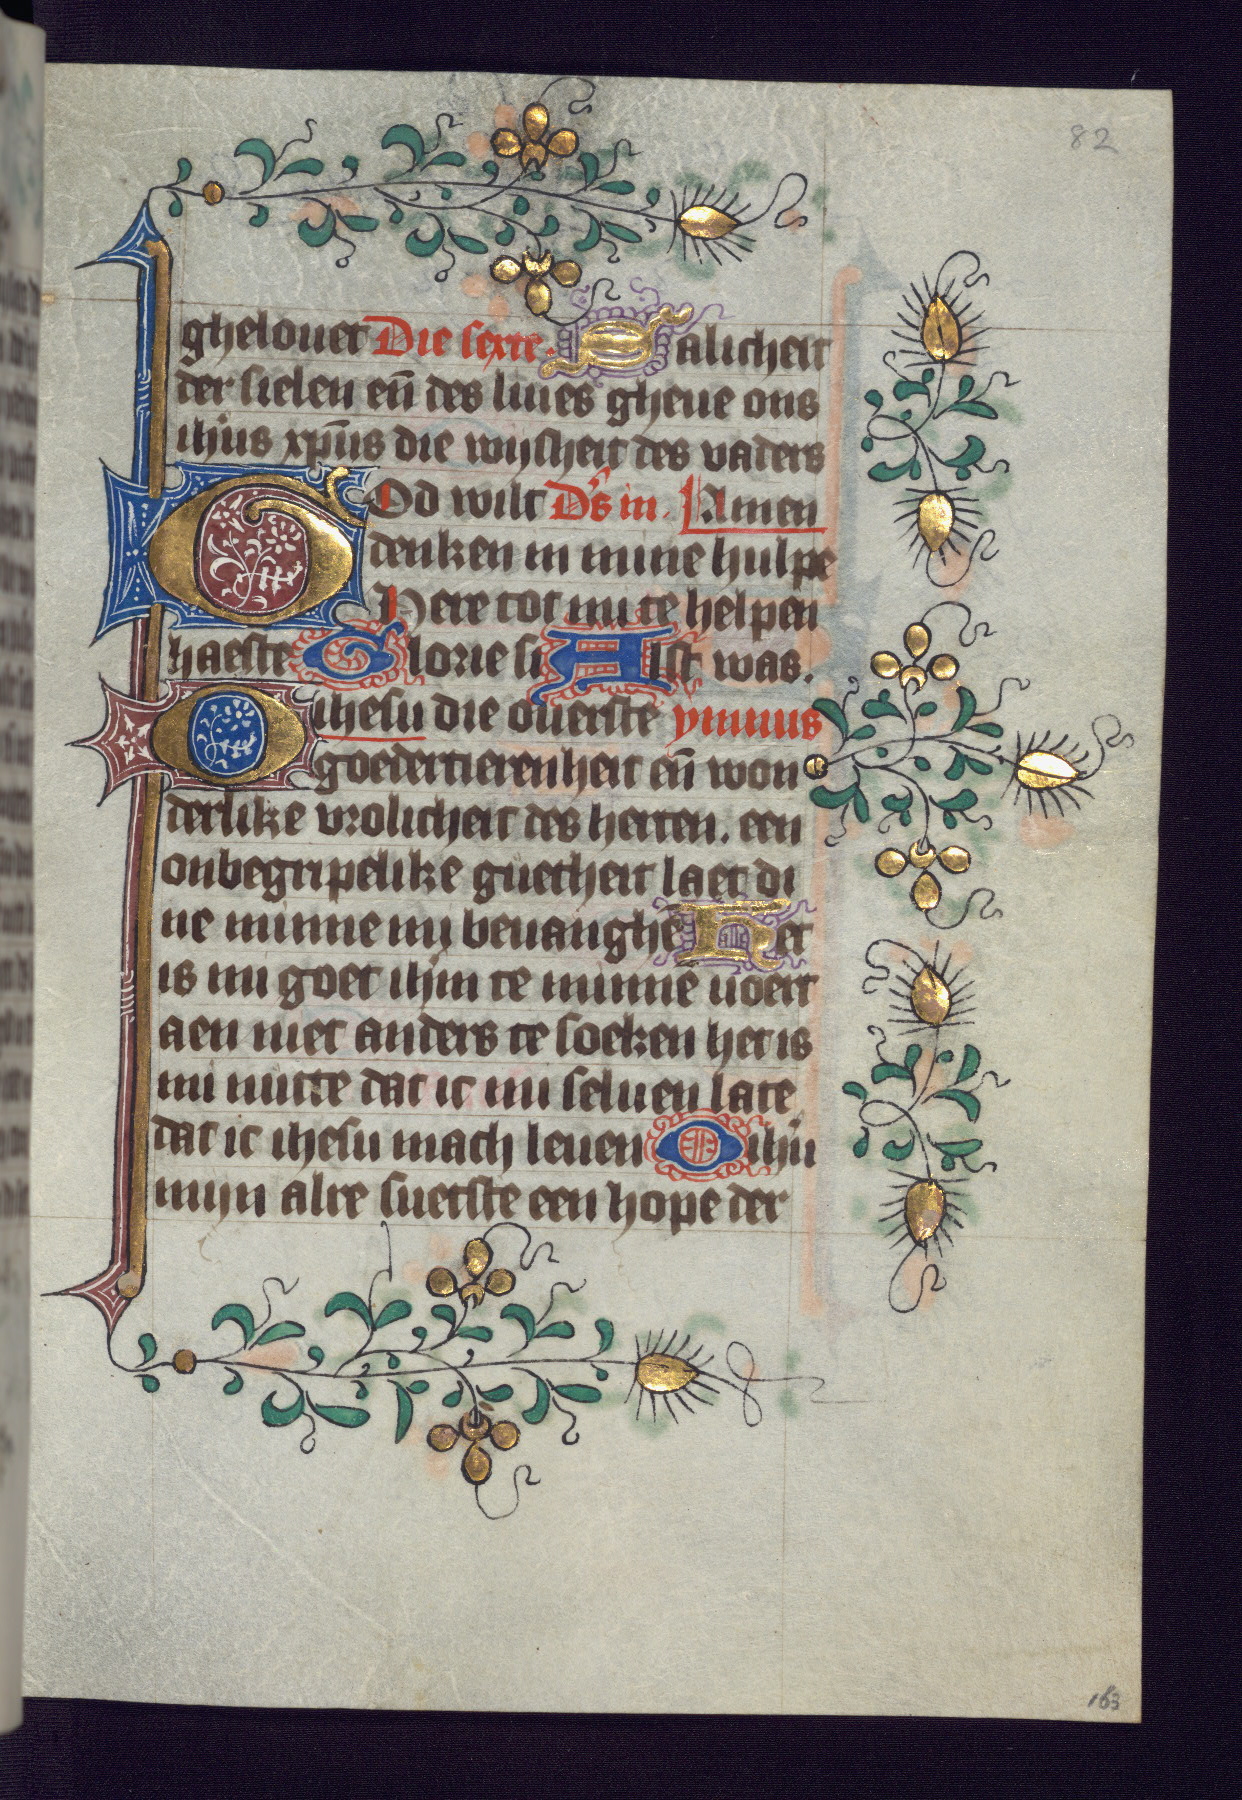 82
ghelouet Die sexte. Salicheit
der sielen eñ des liues gheue ons
ihūs xp̄us die wijsheit des vaders
God wilt Ds̄ in. Amen
denken in mine hulpe
Here tot mi te helpen
haeste Glorie si Alst was.
O ihesu die ouerste ymnus
goedertierenheit eñ won
derlike vrolicheit des herten. een
onbegripelike guetheit laet di
ne minne mij beuanghe Het
is mi goet ihm te minne uoert
aen niet anders te soeken het is
mi nutte dat ic mi seluen late
dat ic ihesu mach leuen O ihū
mijn alre suetste een hope der
163